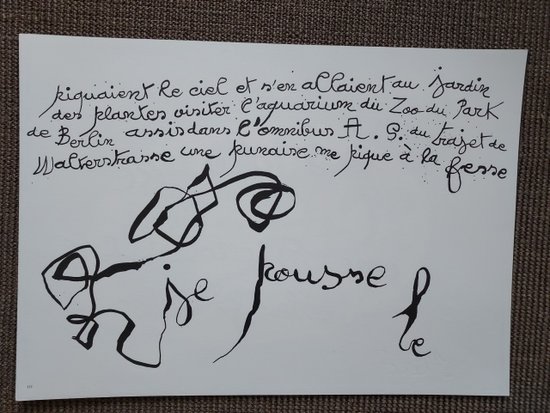 piquaient le ciel et s'en allaient au jardin
des plantes visiter l'aquarium du Zoo du Park
de Berlin assis dans l'omnibus A. G. du trajet de
Walverstrasse une punaise me pique à la fesse
je pousse le